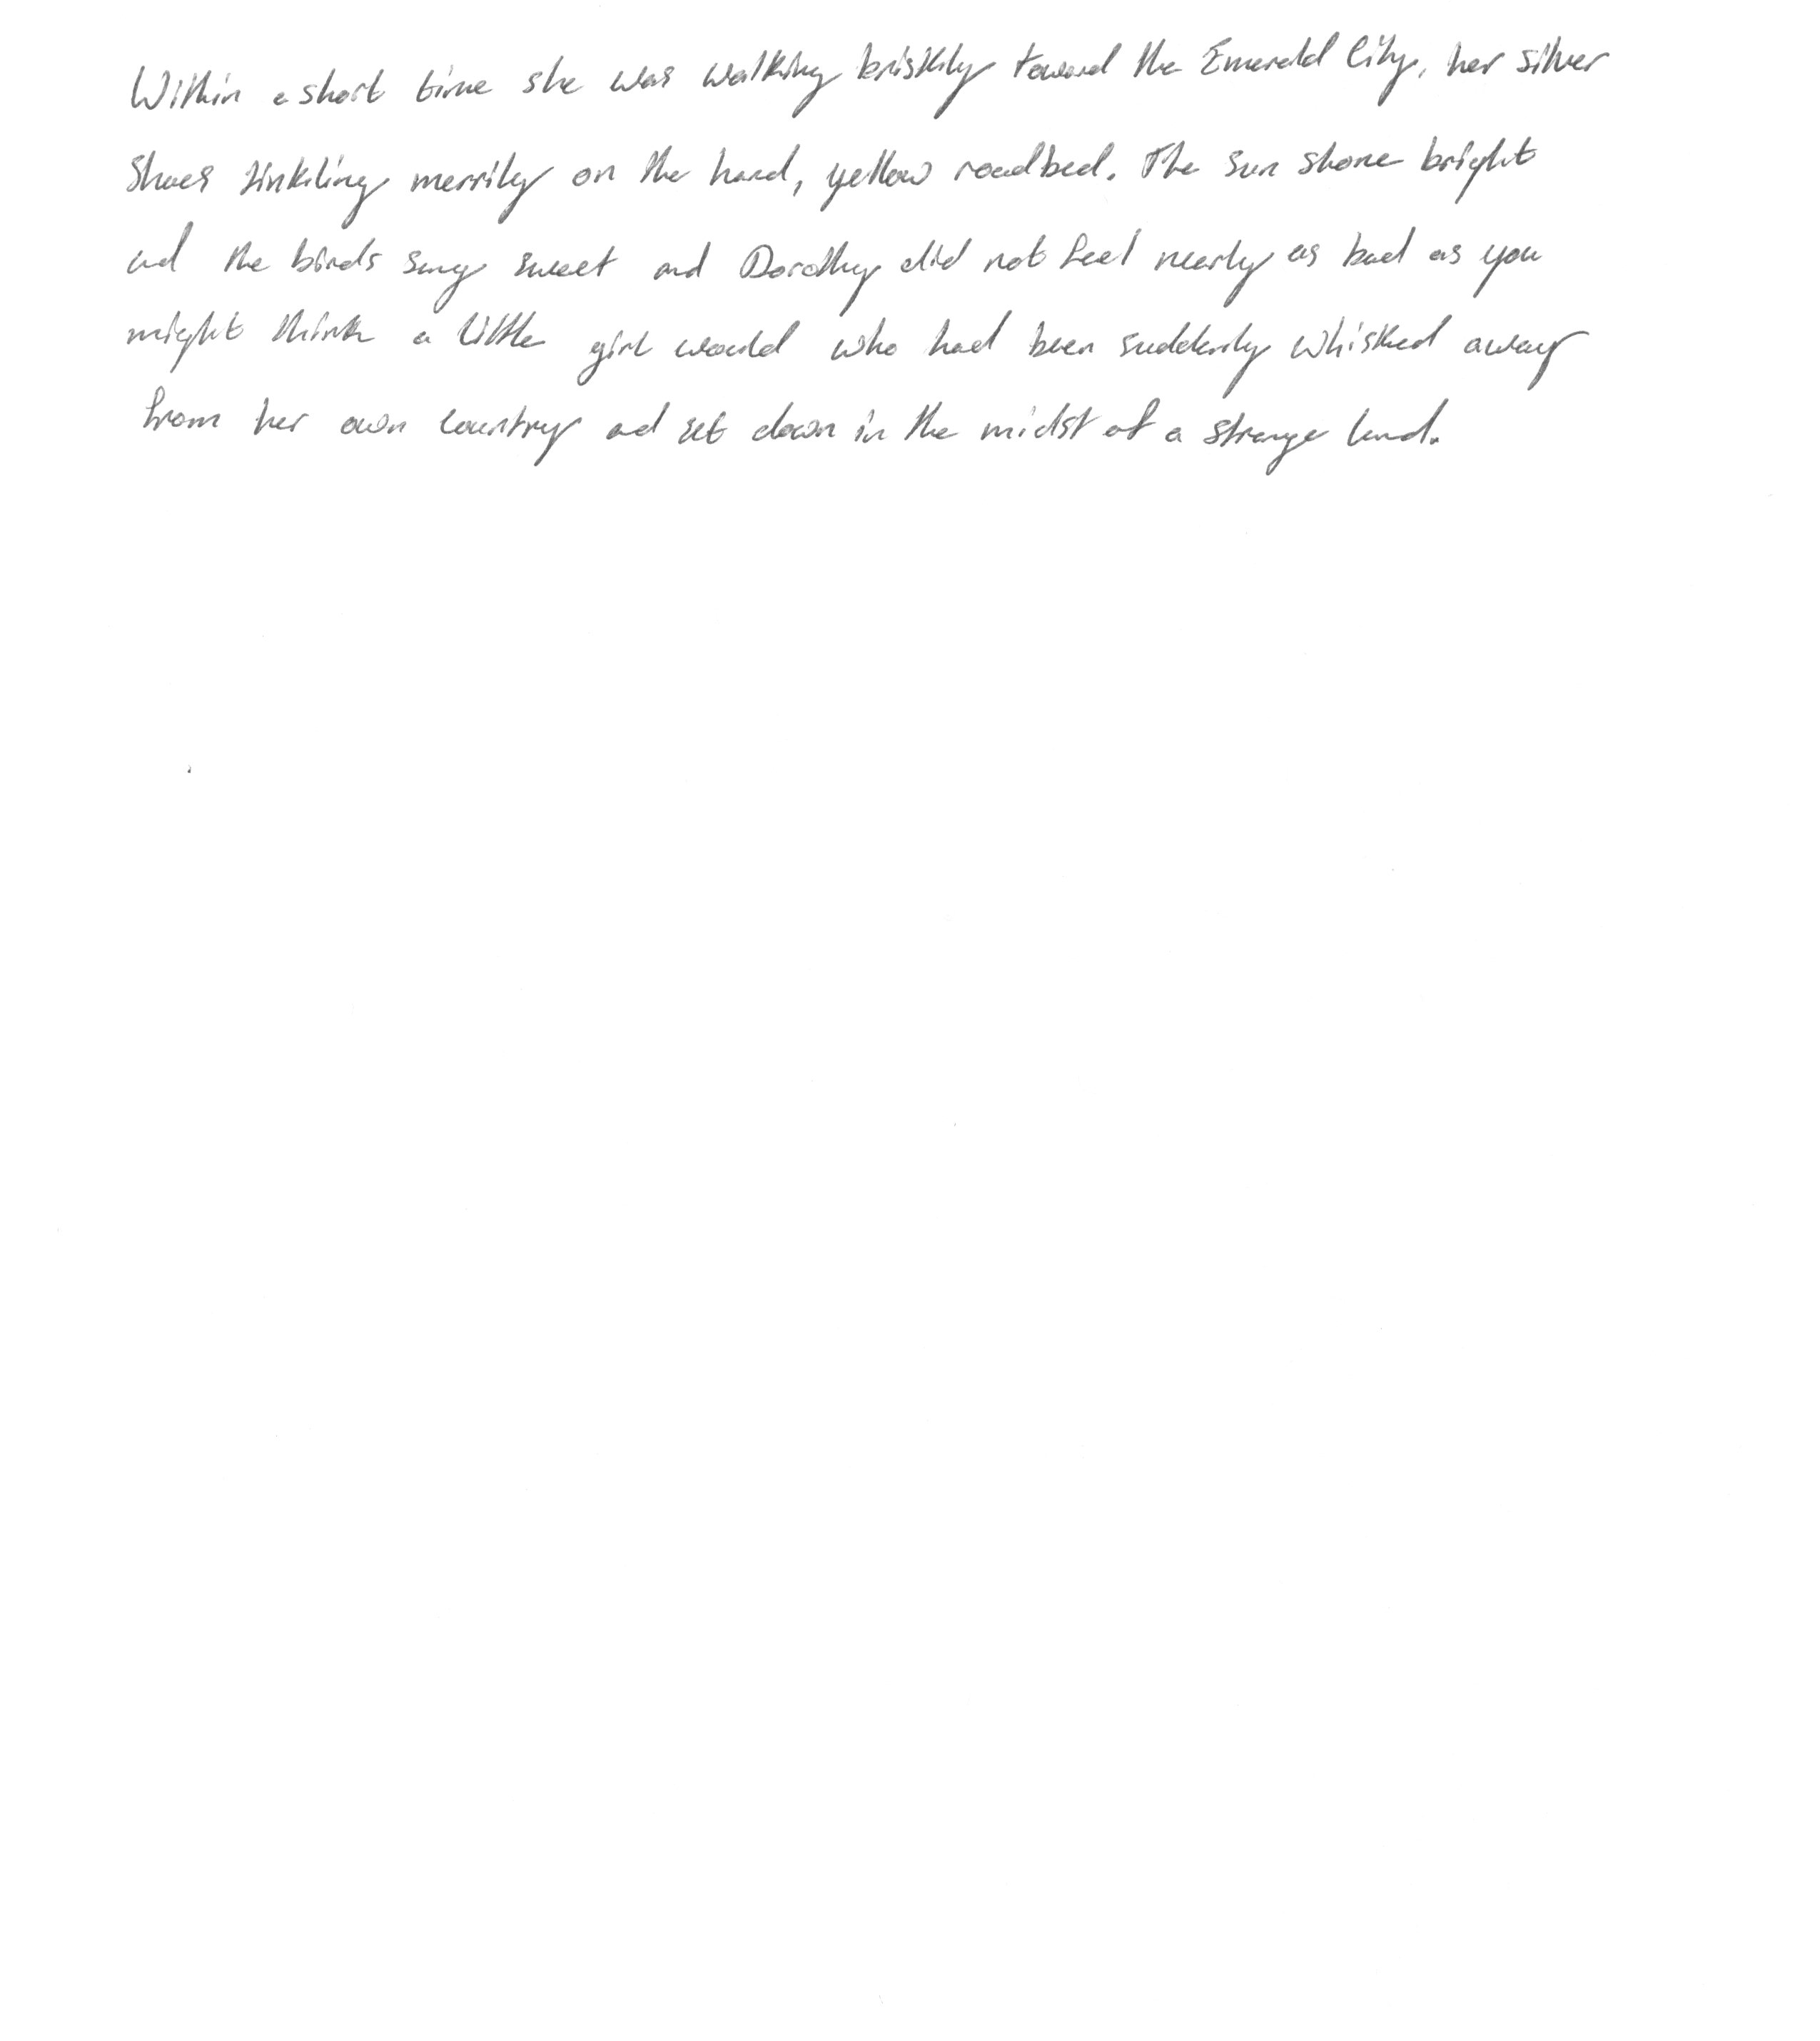 Within a short time she was walking briskly toward the Emerald City, her silver
Shoes tinkling merrily on the hard, yellow roadbed. The sun shone bright
and the birds sang sweet and Dorothy did not feel nearly as bad as you
might think a little girl would who had been suddenly whisked away
from her own country and set down in the midst of a strange land.